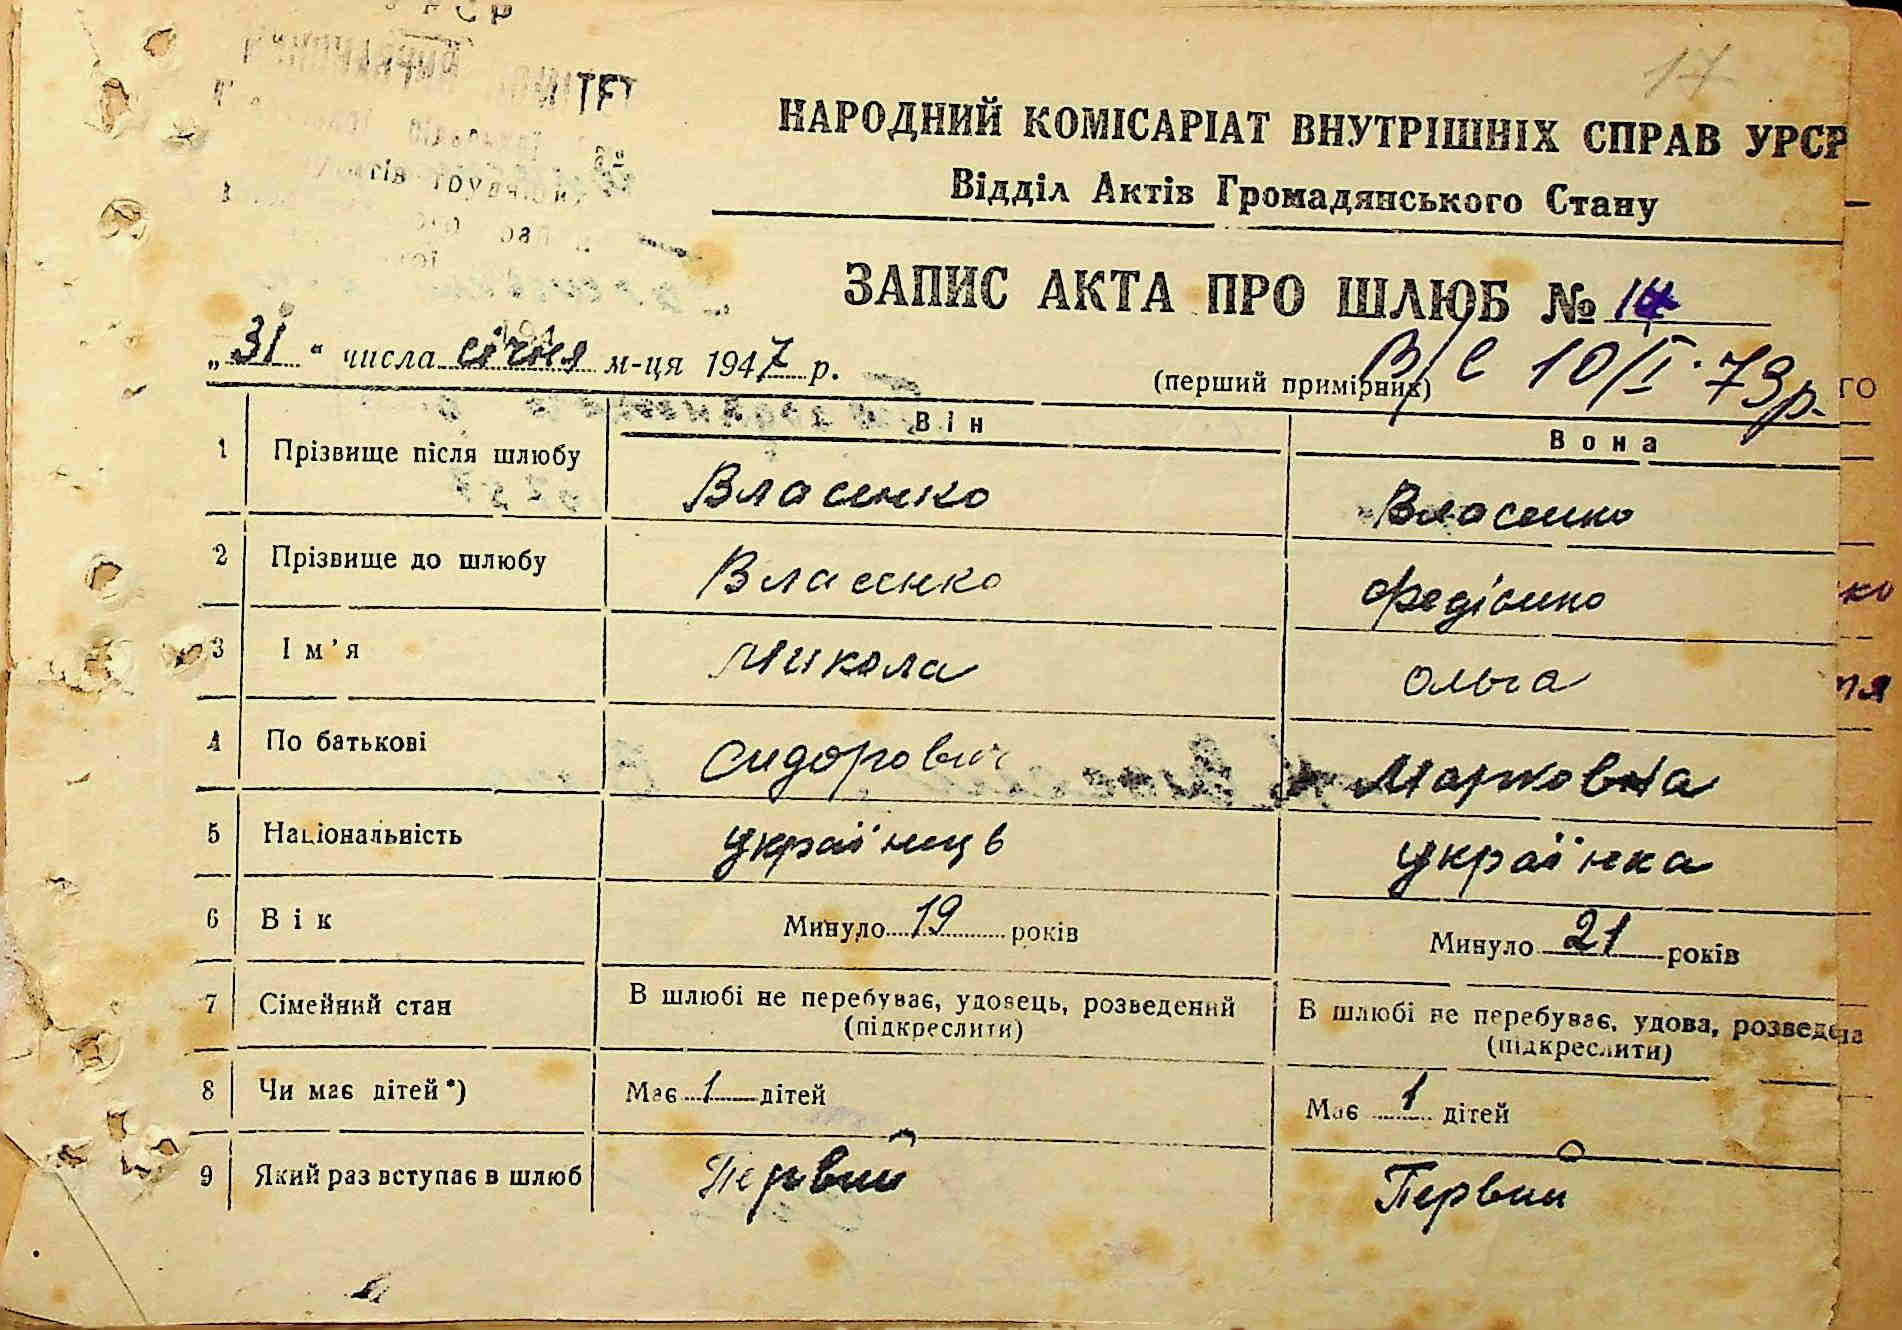 17
НАРОДНИЙ КОМІСАРІАТ ВНУТРІШНІХ СПРАВ УРСР
Відділ Актів Громадянського Стану
ЗАПИС АКТА ПРО ШЛЮБ № 14
„31“ числа січня м-ця 1947 р.
(перший примірник) В/С 10/І·73р.
Він Вона
1 Прізвище після шлюбу Власенко Власенко
2 Прізвище до шлюбу Власенко
3 Ім'я Микола Ольга
4 По батькові Сидорович Марковна
5 Національність українець українка
6 Вік Минуло 19 років Минуло 21 років
7 Сімейний стан В шлюбі не перебуває, удовець, розведений В шлюбі не перебуває, удова, розведена
(підкреслити) (підкреслити)
8 Чи має дітей*) Має 1 дітей Має 1 дітей
9 Який раз вступає в шлюб Первий Первий